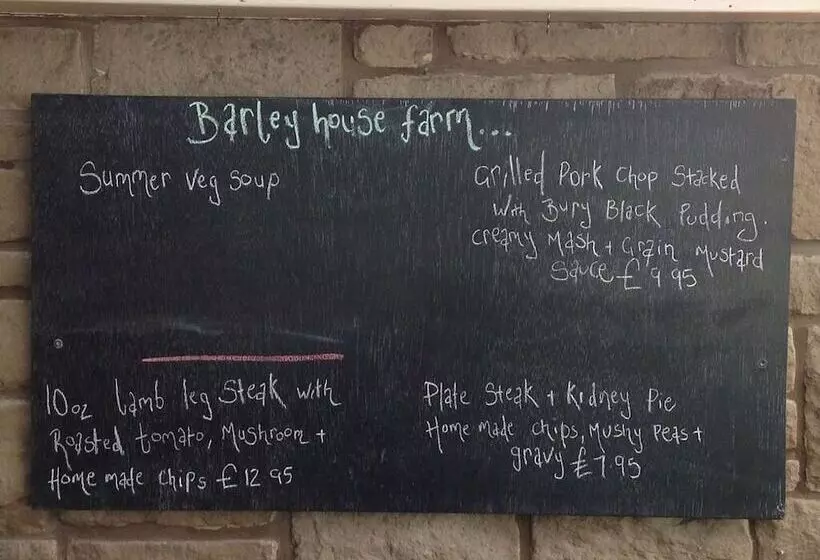 Barley house farm...
Summer veg soup
Grilled Pork Chop Stacked
With Bury Black Pudding.
creamy Mash + Grain Mustard
Sauce £9 95
10oz Lamb leg Steak with
Roasted tomato, Mushroom +
Home made chips £12 95
Plate Steak + Kidney Pie
Home made chips, Mushy Peas +
gravy £7 95